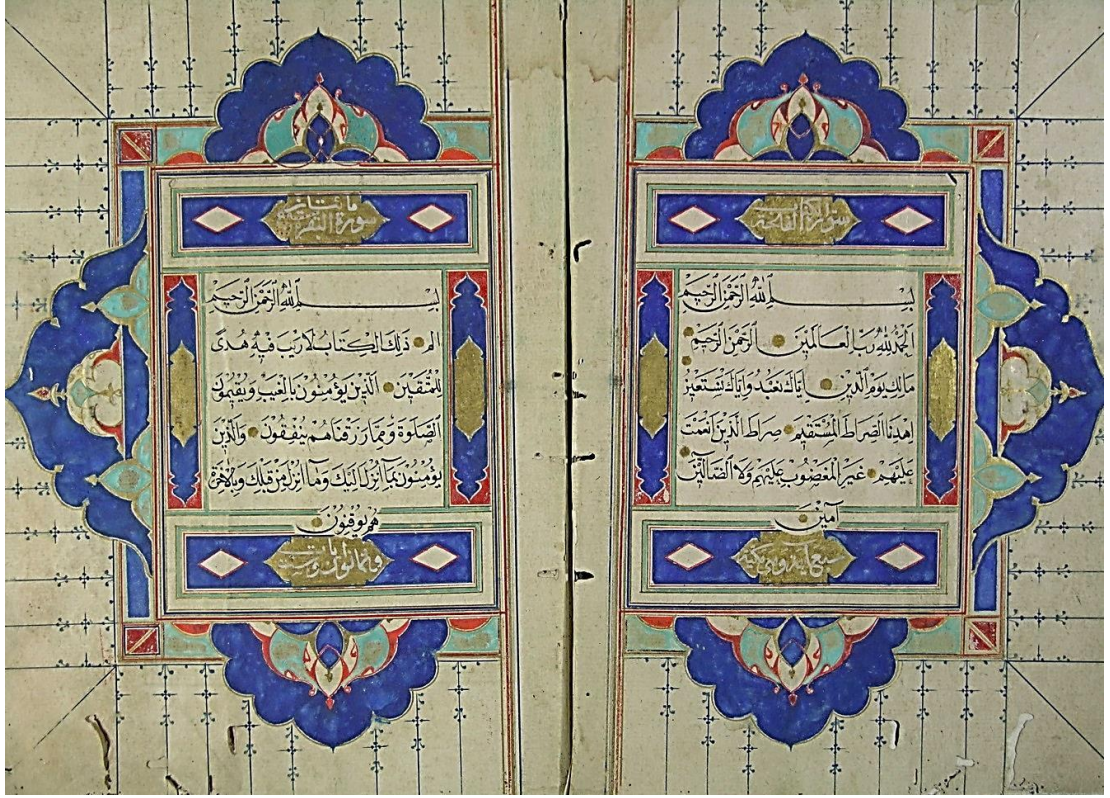 سورة الفاتحة
بسم الله الرحمن الرحيم
الحمد لله رب العالمين الرحمن الرحيم
مالك يوم الدين اياك نعبد واياك نستعين
اهدنا الصراط المستقيم صراط الذين انعمت
عليهم غير المغضوب عليهم ولا الضالين
آمين
سبع
سورة البقرة مائتان
بسم الله الرحمن الرحيم
الم ذلك الكتاب لا ريب فيه هدى
للمتقين الذين يؤمنون بالغيب ويقيمون
الصلوة ومما رزقناهم ينفقون والذين
يؤمنون بما انزل اليك وما انزل من قبلك وبالآخرة
هم يوقنون
وثمانون